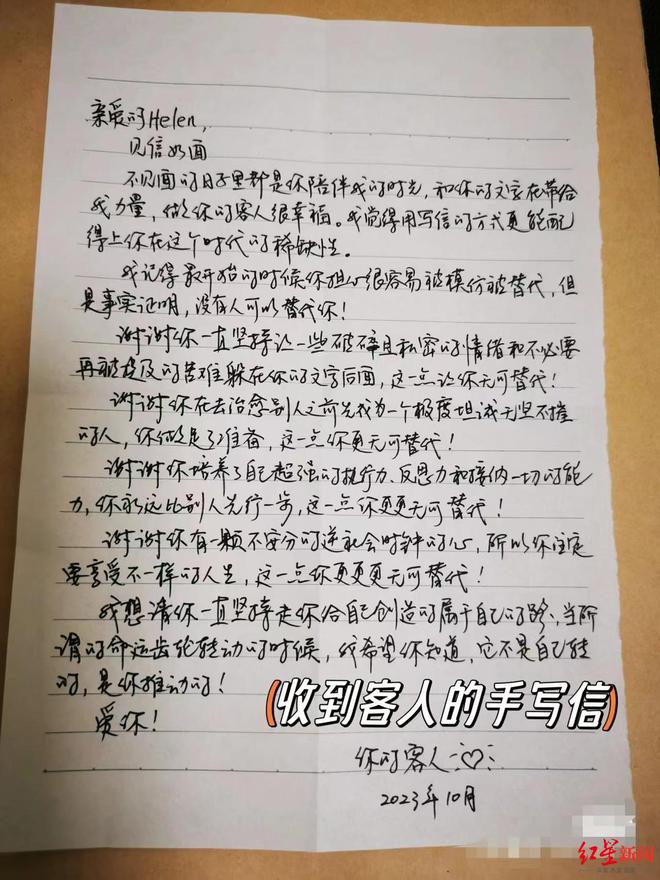 亲爱的Helen,
见信如面
不见面的日子里都是你陪伴我的时光，和你的文字在带给
我力量，做你的客人很幸福。我觉得用写信的方式更能配
得上你在这个时代的稀缺性。
我记得最开始的时候你担心很容易被模仿被替代，但
是事实证明，没有人可以替代你！
谢谢你一直坚持让一些破碎且私密的情绪和不必要
再被提及的苦难躲在你的文字后面，这一点让你无可替代！
谢谢你在去治愈别人之前先成为一个极度坦诚无坚不摧
的人，你做足了准备，这一点你更无可替代！
谢谢你培养了自己超强的执行力、反思力和接纳一切的能
力，你永远比别人先行一步，这一点你更更无可替代！
谢谢你有一颗不安分的逆社会时钟的心，所以你注定
要享受不一样的人生，这一点你更更更无可替代！
我想请你一直坚持走你给自己创造的属于自己的路、当所
谓的命运齿轮转动的时候，我希望你知道，它不是自己转
的，是你推动的！
(收到客人的手写信)
爱你！
你的客人
2023年10月
红星新闻